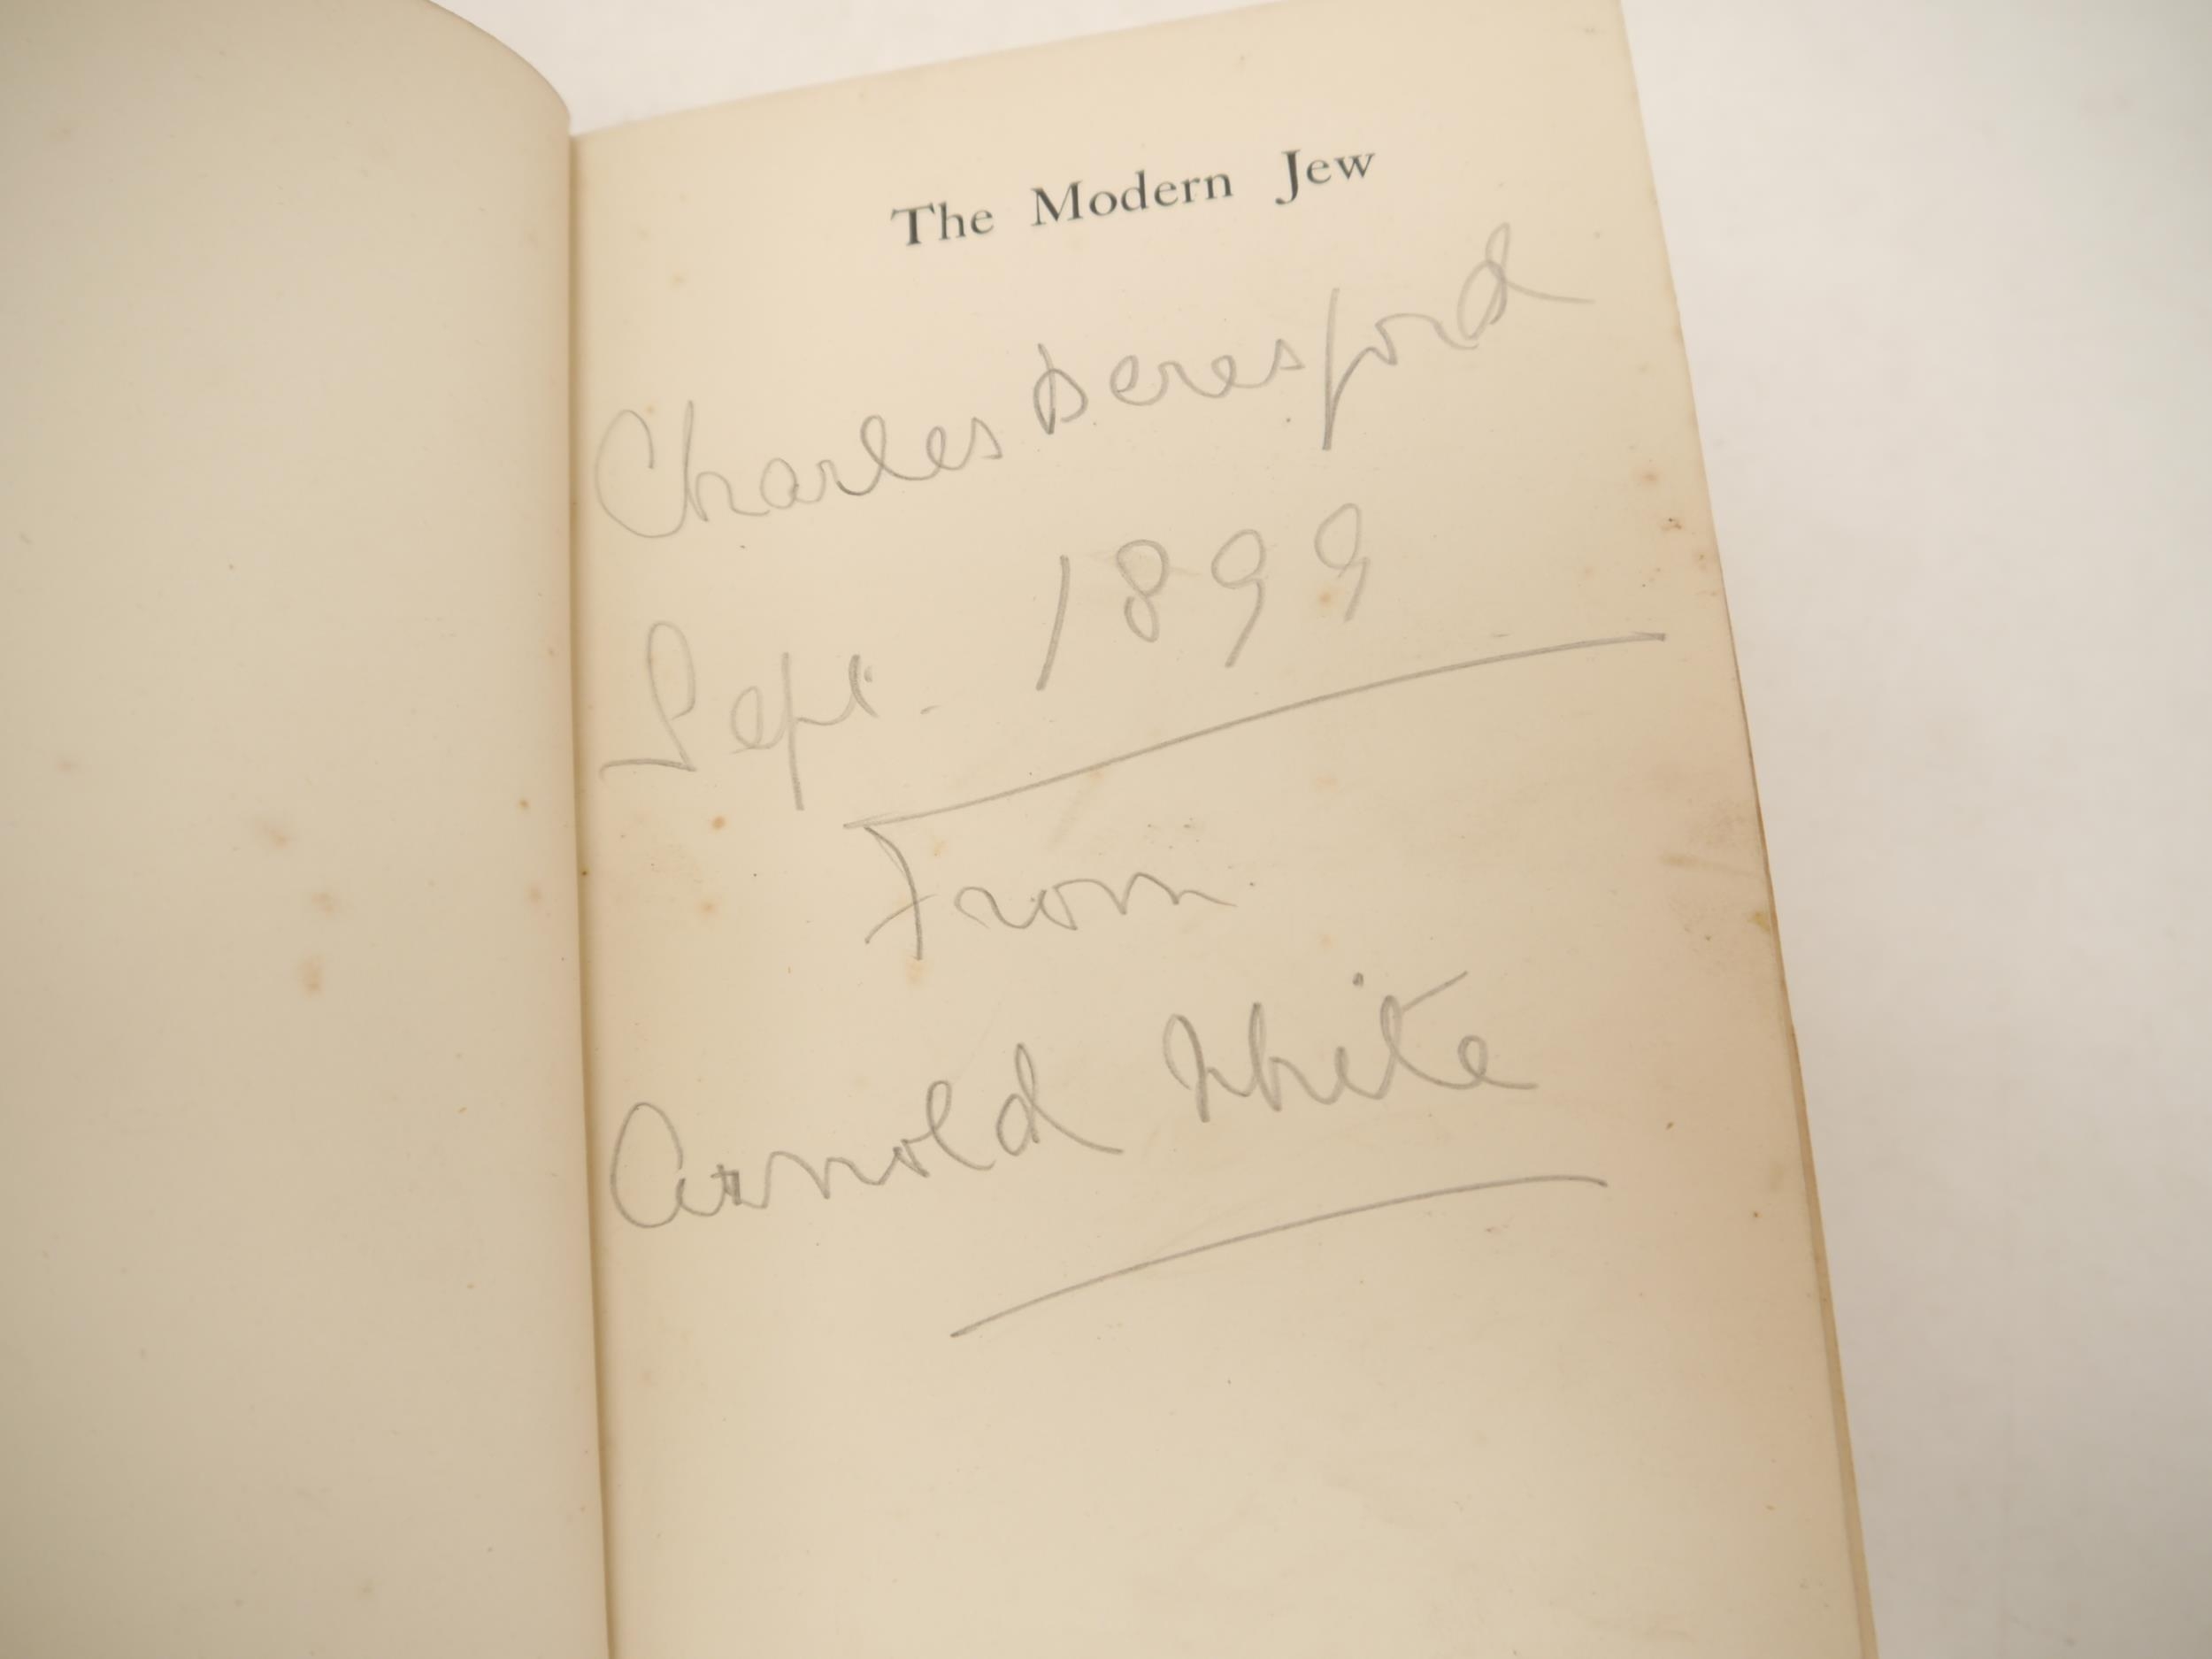 The Modern Jew
Charles Beresford
Sept. 1899
From
Arnold White